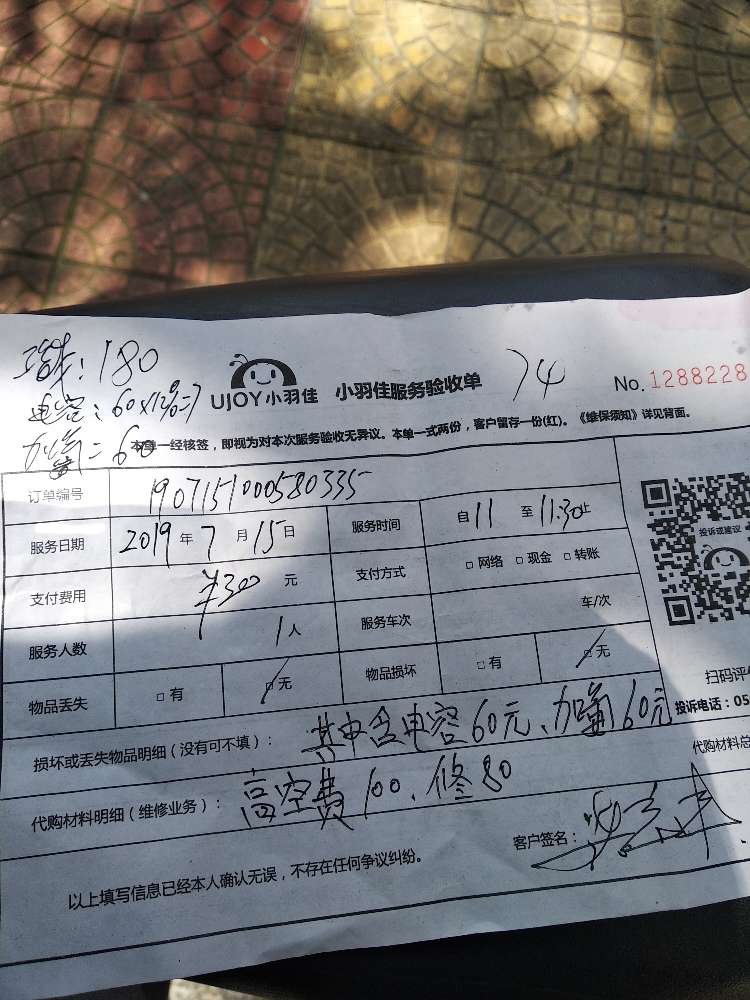 : 180
UJOY小羽佳 小羽佳服务验收单 74 No. 1288228
电容: 60×12%=7
加氟= 60
本单一经核签，即视为对本次服务验收无异议。本单一式两份，客户留存一份(红)。《维保须知》详见背面。
订单编号 1907151000580335
服务日期 2019 年 7 月 15 日 服务时间 自 11 至 11:30 止
支付费用 ¥300 元 支付方式 □ 网络 □ 现金 □ 转账
服务人数 1 人 服务车次 车/次
物品丢失 □ 有 □ 无 物品损坏 □ 有 □ 无
投诉或建议
扫码评
投诉电话：05
损坏或丢失物品明细（没有可不填）： 其中含电容60元、加氟60元
代购材料总
代购材料明细（维修业务）： 高空费100、修80
客户签名：
以上填写信息已经本人确认无误，不存在任何争议纠纷。